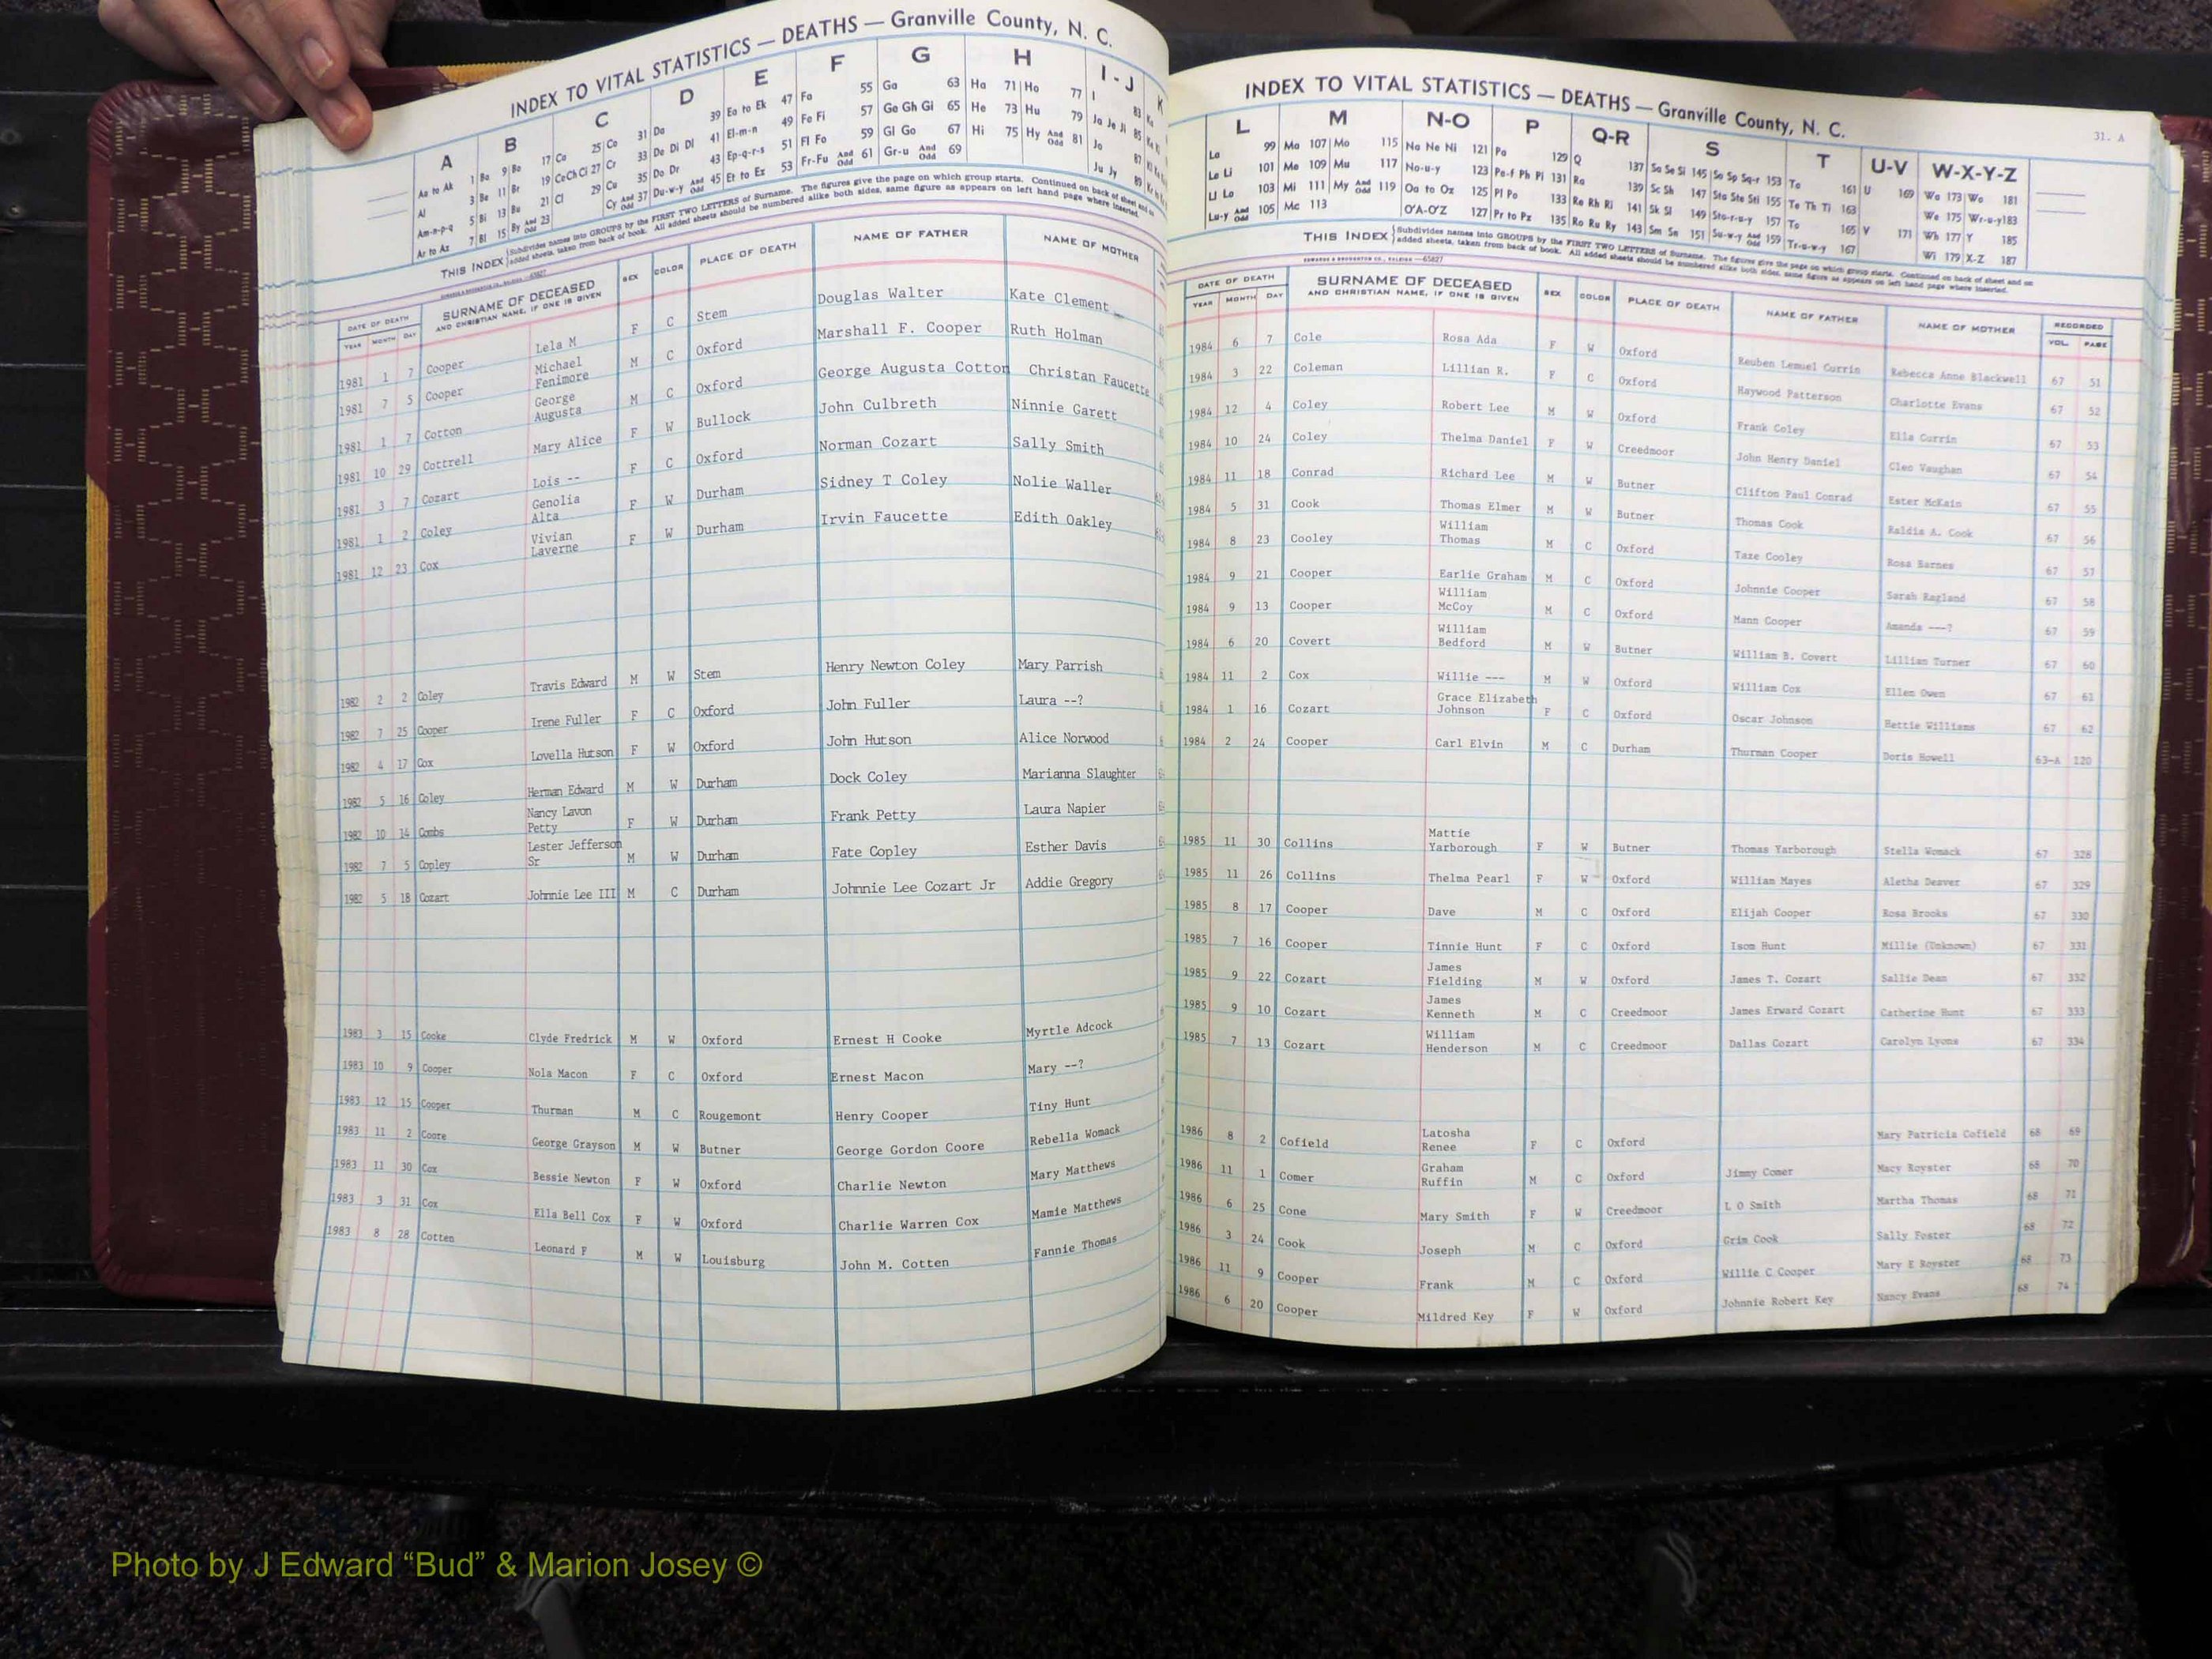 INDEX TO VITAL STATISTICS — DEATHS — Granville County, N. C.
A B C D E F G H I-J K
Aa to Ak 1 Ba 9 Bo 17 Ca 25 Co 31 Da 39 Ea to Ek 47 Fa 55 Ga 63 Ha 71 Ho 77 I 83
Al 3 Be 11 Br 19 Ce Ch Ci 27 Cr 33 De Di Dl 41 El-m-n 49 Fe Fi 57 Ge Gh Gi 65 He 73 Hu 79 Ja Je Ji 85
Am-n-p-q 5 Bi 13 Bu 21 Cl 29 Cu 35 Do Dr 43 Ep-q-r-s 51 Fl Fo 59 Gl Go 67 Hi 75 Hy And Odd 81 Jo 87
Ar to Az 7 Bl 15 By And Odd 23 Cy And Odd 37 Du-w-y And Odd 45 Et to Ez 53 Fr-Fu And Odd 61 Gr-u And Odd 69 Ju Jy 89
THIS INDEX Subdivides names into GROUPS by the FIRST TWO LETTERS of Surname. The figures give the page on which group starts. Continued on back of sheet and on
added sheets, taken from back of book. All added sheets should be numbered alike both sides, same figure as appears on left hand page where inserted.
DATE OF DEATH SURNAME OF DECEASED SEX COLOR PLACE OF DEATH NAME OF FATHER NAME OF MOTHER
YEAR MONTH DAY AND CHRISTIAN NAME, IF ONE IS GIVEN
1981 1 7 Cooper Lela M F C Stem Douglas Walter Kate Clement
1981 7 5 Cooper Michael Fenimore M C Oxford Marshall F. Cooper Ruth Holman
1981 1 7 Cotton George Augusta M C Oxford George Augusta Cotton Christan Faucette
1981 10 29 Cottrell Mary Alice F W Bullock John Culbreth Ninnie Garett
1981 3 7 Cozart Lois -- F C Oxford Norman Cozart Sally Smith
1981 1 2 Coley Genolia Alta F W Durham Sidney T Coley Nolie Waller
1981 12 23 Cox Vivian Laverne F W Durham Irvin Faucette Edith Oakley
1982 2 2 Coley Travis Edward M W Stem Henry Newton Coley Mary Parrish
1982 7 25 Cooper Irene Fuller F C Oxford John Fuller Laura --?
1982 4 17 Cox Lovella Hutson F W Oxford John Hutson Alice Norwood
1982 5 16 Coley Herman Edward M W Durham Dock Coley Marianna Slaughter
1982 10 14 Combs Nancy Lavon Petty F W Durham Frank Petty Laura Napier
1982 7 5 Copley Lester Jefferson Sr M W Durham Fate Copley Esther Davis
1982 5 18 Cozart Johnnie Lee III M C Durham Johnnie Lee Cozart Jr Addie Gregory
1983 3 15 Cooke Clyde Fredrick M W Oxford Ernest H Cooke Myrtle Adcock
1983 10 9 Cooper Nola Macon F C Oxford Ernest Macon Mary --?
1983 12 15 Cooper Thurman M C Rougemont Henry Cooper Tiny Hunt
1983 11 2 Coore George Grayson M W Butner George Gordon Coore Rebella Womack
1983 11 30 Cox Bessie Newton F W Oxford Charlie Newton Mary Matthews
1983 3 31 Cox Ella Bell Cox F W Oxford Charlie Warren Cox Mamie Matthews
1983 8 28 Cotten Leonard F M W Louisburg John M. Cotten Fannie Thomas
INDEX TO VITAL STATISTICS — DEATHS — Granville County, N. C.
31. A
L M N-O P Q-R S T U-V W-X-Y-Z
La 99 Ma 107 Mo 115 Na Ne Ni 121 Pa 129 Q 137 Sa Se Si 145 So Sp Sq-r 153 Ta 161 U 169 Wa 173 Wo 181
Le Li 101 Me 109 Mu 117 No-u-y 123 Pe-f Ph Pi 131 Ra 139 Sc Sh 147 Sta Ste Sti 155 Te Th Ti 163 We 175 Wr-u-y 183
Ll Lo 103 Mi 111 My And Odd 119 Oa to Oz 125 Pl Po 133 Re Rh Ri 141 Sk Sl 149 Sto-r-u-y 157 To 165 V 171 Wh 177 Y 185
Lu-y And Odd 105 Mc 113 O'A-O'Z 127 Pr to Pz 135 Ro Ru Ry 143 Sm Sn 151 Su-w-y And Odd 159 Tr-u-w-y 167 Wi 179 X-Z 187
THIS INDEX Subdivides names into GROUPS by the FIRST TWO LETTERS of Surname. The figures give the page on which group starts. Continued on back of sheet and on
added sheets, taken from back of book. All added sheets should be numbered alike both sides, same figure as appears on left hand page where inserted.
EDWARDS & BROUGHTON CO., RALEIGH —65827
DATE OF DEATH SURNAME OF DECEASED SEX COLOR PLACE OF DEATH NAME OF FATHER NAME OF MOTHER RECORDED
YEAR MONTH DAY AND CHRISTIAN NAME, IF ONE IS GIVEN VOL. PAGE
1984 6 7 Cole Rosa Ada F W Oxford Reuben Lemuel Currin Rebecca Anne Blackwell 67 51
1984 3 22 Coleman Lillian R. F C Oxford Haywood Patterson Charlotte Evans 67 52
1984 12 4 Coley Robert Lee M W Oxford Frank Coley Ella Currin 67 53
1984 10 24 Coley Thelma Daniel F W Creedmoor John Henry Daniel Cleo Vaughan 67 54
1984 11 18 Conrad Richard Lee M W Butner Clifton Paul Conrad Ester McKain 67 55
1984 5 31 Cook Thomas Elmer M W Butner Thomas Cook Raldia A. Cook 67 56
1984 8 23 Cooley William Thomas M C Oxford Taze Cooley Rosa Barnes 67 57
1984 9 21 Cooper Earlie Graham M C Oxford Johnnie Cooper Sarah Ragland 67 58
1984 9 13 Cooper William McCoy M C Oxford Mann Cooper Amanda ---? 67 59
1984 6 20 Covert William Bedford M W Butner William B. Covert Lillian Turner 67 60
1984 11 2 Cox Willie --- M W Oxford William Cox Ellen Owen 67 61
1984 1 16 Cozart Grace Elizabeth Johnson F C Oxford Oscar Johnson Hettie Williams 67 62
1984 2 24 Cooper Carl Elvin M C Durham Thurman Cooper Doris Howell 63-A 120
1985 11 30 Collins Mattie Yarborough F W Butner Thomas Yarborough Stella Womack 67 328
1985 11 26 Collins Thelma Pearl F W Oxford William Mayes Aletha Deaver 67 329
1985 8 17 Cooper Dave M C Oxford Elijah Cooper Rosa Brooks 67 330
1985 7 16 Cooper Tinnie Hunt F C Oxford Isom Hunt Millie (Unknown) 67 331
1985 9 22 Cozart James Fielding M W Oxford James T. Cozart Sallie Dean 67 332
1985 9 10 Cozart James Kenneth M C Creedmoor James Erward Cozart Catherine Hunt 67 333
1985 7 13 Cozart William Henderson M C Creedmoor Dallas Cozart Carolyn Lyons 67 334
1986 8 2 Cofield Latosha Renee F C Oxford Mary Patricia Cofield 68 69
1986 11 1 Comer Graham Ruffin M C Oxford Jimmy Comer Macy Royster 68 70
1986 6 25 Cone Mary Smith F W Creedmoor L O Smith Martha Thomas 68 71
1986 3 24 Cook Joseph M C Oxford Grim Cook Sally Foster 68 72
1986 11 9 Cooper Frank M C Oxford Willie C Cooper Mary E Royster 68 73
1986 6 20 Cooper Mildred Key F W Oxford Johnnie Robert Key Nancy Evans 68 74
Photo by J Edward “Bud” & Marion Josey ©